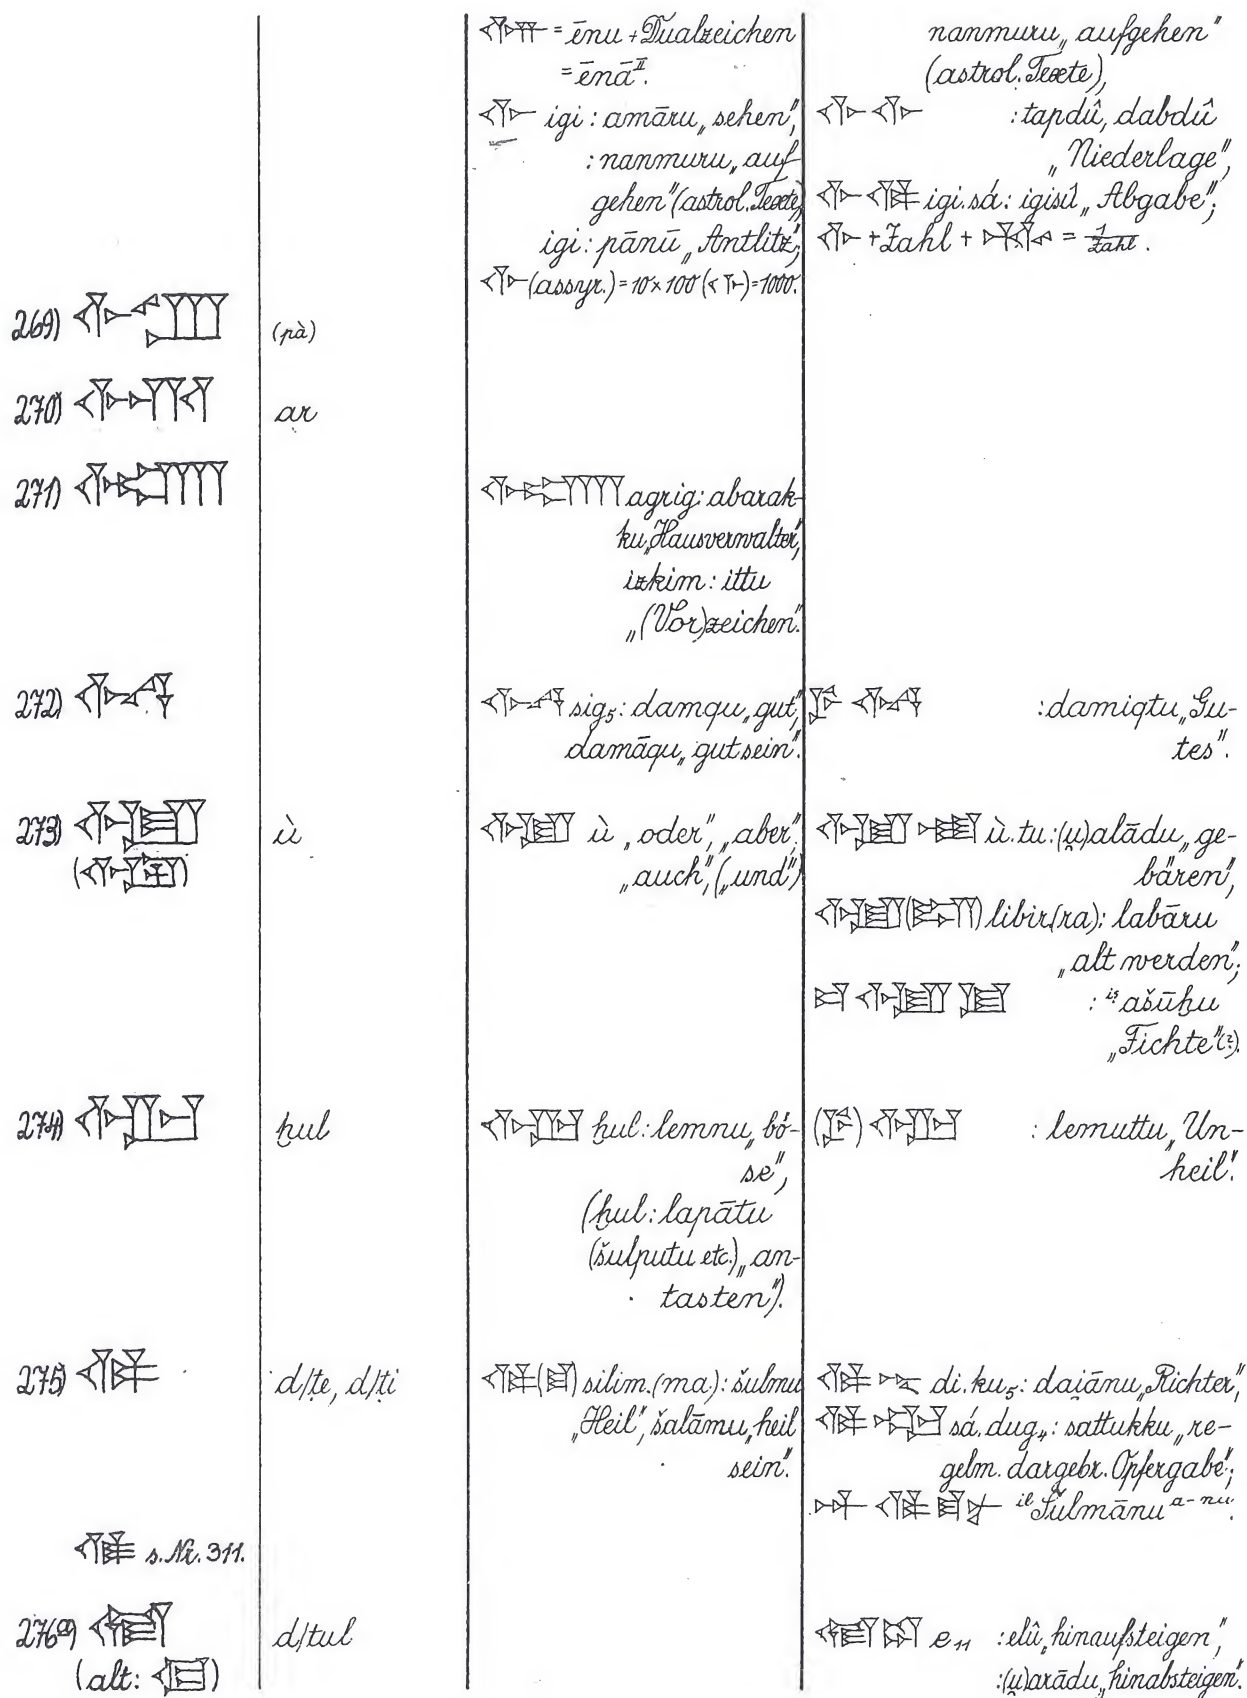 𒅆𒈫 = ēnu + Dualzeichen
= ēnā II.
𒅆 igi : amāru „sehen",
: nanmuru „auf
gehen" (astrol. Texte)
igi : pānū „Antlitz",
𒅆 (assyr.) = 10 × 100 (𒌋 𒈨) = 1000.
nanmuru „aufgehen"
(astrol. Texte),
𒅆 𒅆 : tapdû, dabdû
„Niederlage",
𒅆 𒁲 igi.sá : igisû „Abgabe";
𒅆 + Zahl + 𒃮 = 1/Zahl.
269) 𒅆𒊒 (pà)
270) 𒅈 ar
271) 𒅆𒂟 𒅆𒂟 agrig : abarak-
ku „Hausverwalter",
izkim : ittu
„(Vor)zeichen".
272) 𒅆𒂟 sig₅ : damqu „gut",
damāqu „gut sein".
: damiqtu „Gu-
tes".
273) 𒅇 ù 𒅇 ù „oder", „aber",
(𒅇) „auch", („und")
𒅇 𒌅 ù.tu : (u̯)alādu „ge-
bären",
𒅇 (𒊏) libir(ra) : labāru
„alt werden";
𒄑 𒅇 𒆪 : iṣ ašūḫu
„Fichte" (?).
274) 𒅆𒌨 ḫul 𒅆𒌨 ḫul : lemnu „bö-
se",
(ḫul : lapātu
(šulputu etc.) „an-
tasten").
(𒊩) 𒅆𒌨 : lemuttu „Un-
heil".
275) 𒁲 d/ṭe, d/ṭi 𒁲 (𒈠) silim.(ma) : šulmu
„Heil", šalāmu „heil
sein".
𒁲 𒋻 di.ku₅ : dai̯ānu „Richter",
𒁲 𒅗 sá.dug₄ : sattukku „re-
gelm. dargebr. Opfergabe";
𒀭 𒁲 𒈠 𒉡 il Šulmānu a-nu.
s. Nr. 311.
276a) 𒇯 d/tul
(alt: )
e₁₁ : elû „hinaufsteigen",
: (u̯)arādu „hinabsteigen".